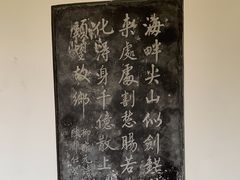 海畔尖山似劍鋩
來處處割愁腸若
化得身千億散上
頭望故鄉